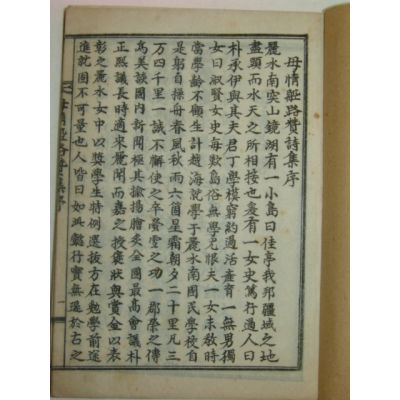 母情艇路贊詩集序
麗水南突山鏡湖有一小島曰佳亭我邦疆域之地
盡頭而水天之所相接也爰有一女史篤行過人曰
朴承伊與其夫君丁學模窮約過活產育一無男獨
女曰淑賢女史每歎島俗無學見恨夫女未敎時
當學齡不顧生計越海就學于麗水南國民學校自
是躬自操舟春風秋雨六箇星霜朝夕二十里凡三
万四千里一誠不懈使之卒螢雪之功一郡榮之傳
爲美談國內新聞極其揄揚膾炙全國最高會議朴
正熙議長時適來麗聞而嘉之授褒狀與賞金以表
彰之麗水女中以奬學生特例選拔方在勉學前途
進就固不可量也人皆曰如此懿行實無遜於古之
母情艇路贊集序
一